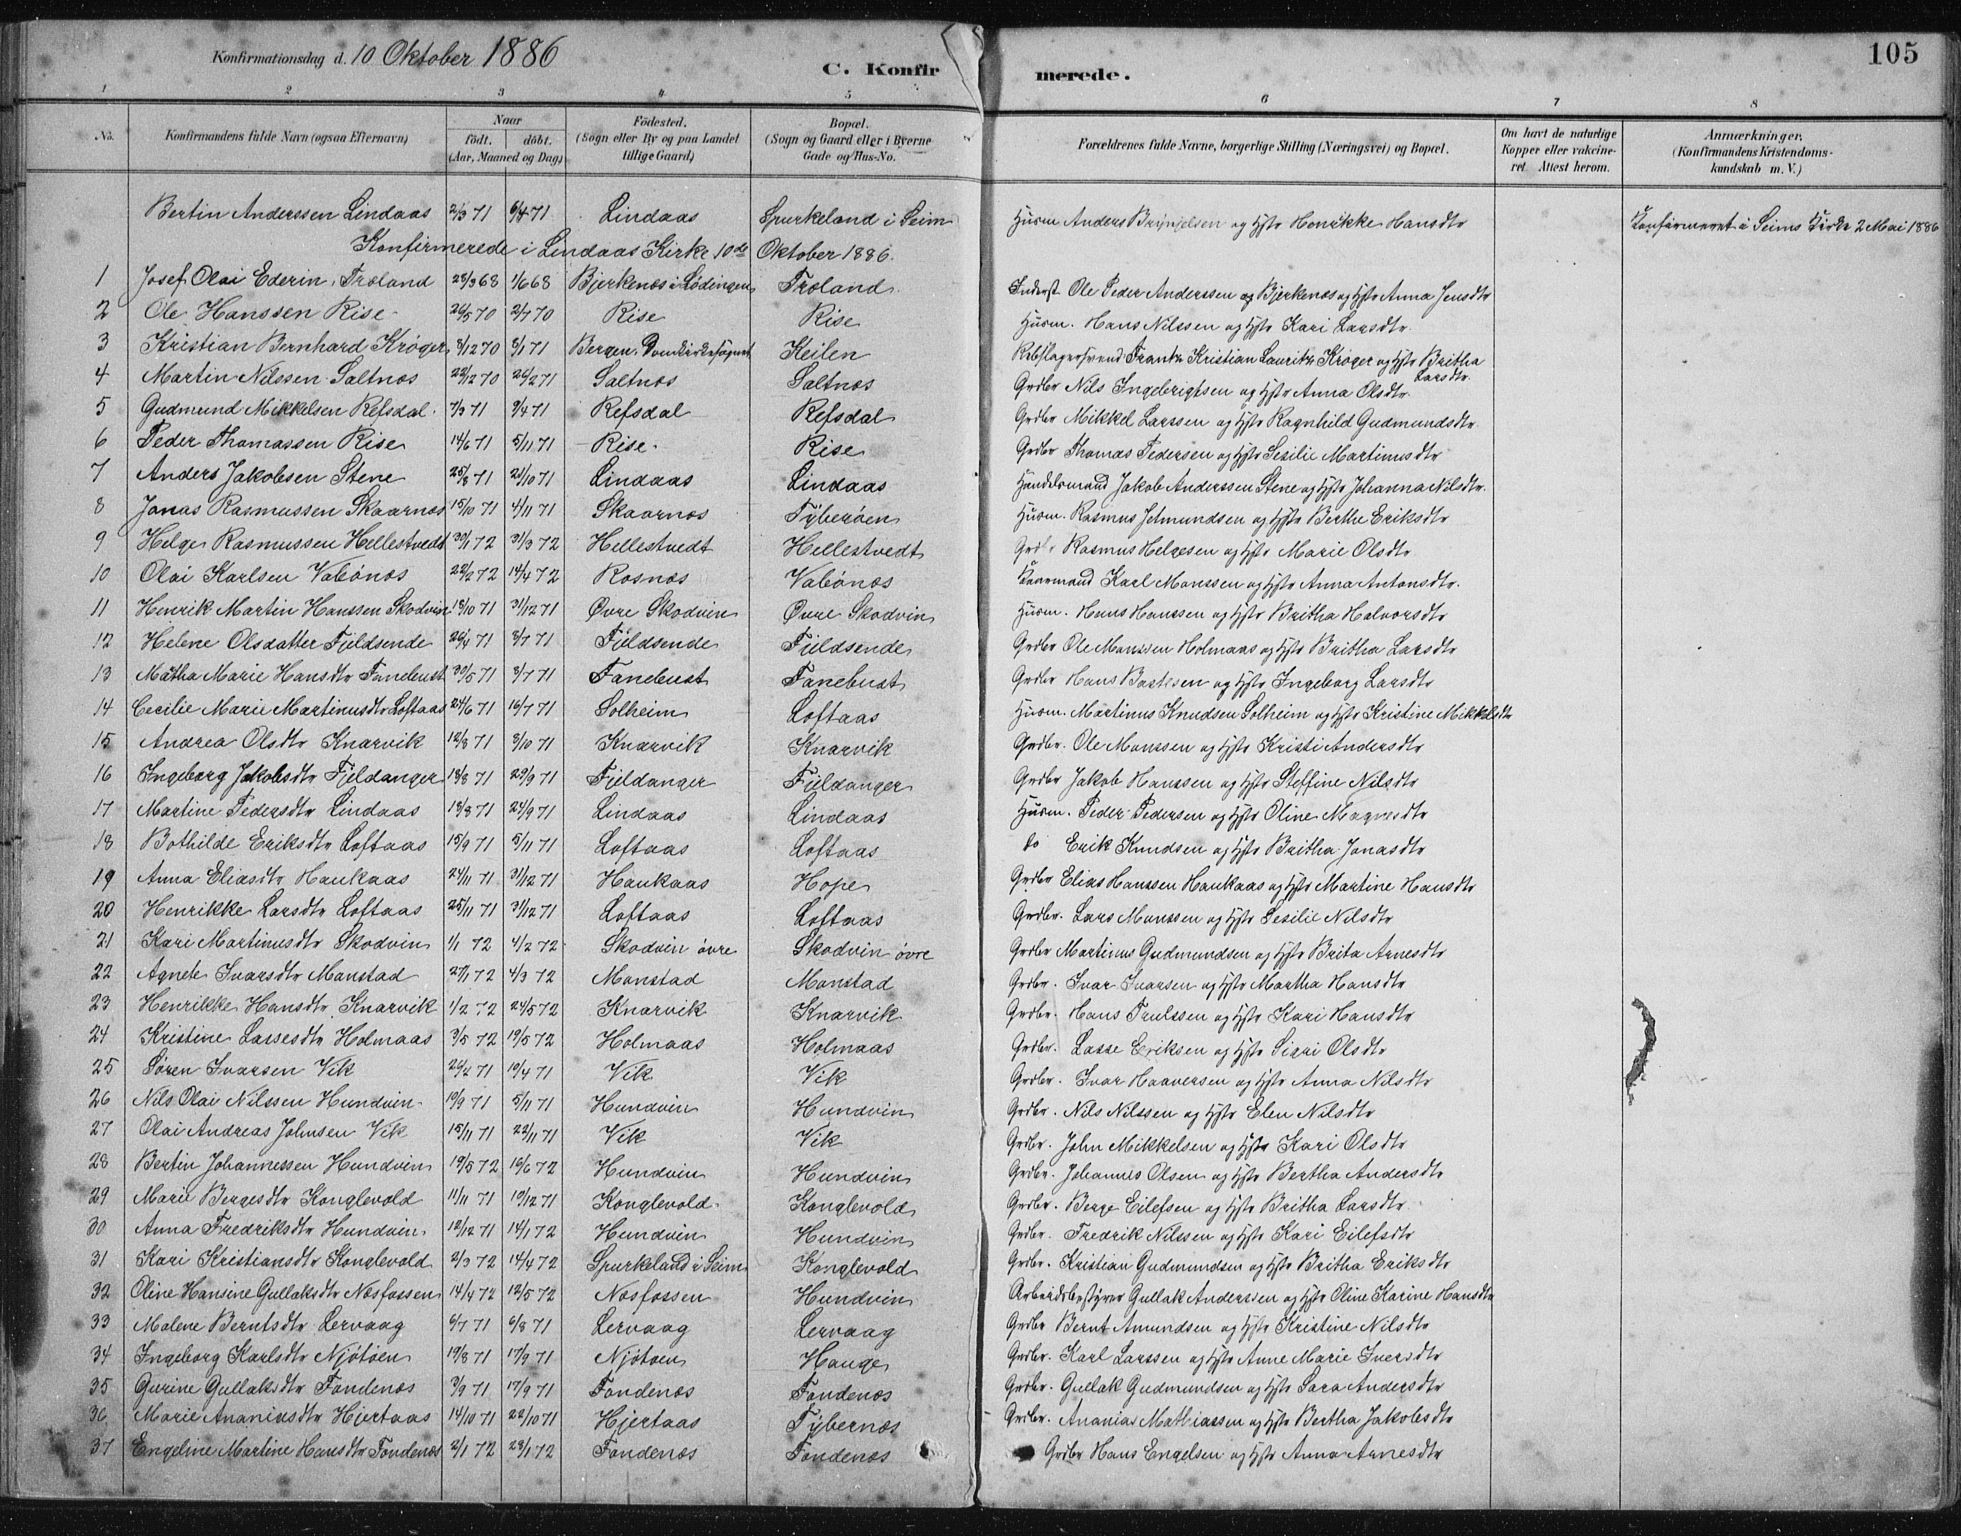 Konfirmationsdag d. 10 Oktober 1886
C. Konfirmerede.
105
1 2 3 4 5 6 7 8
No. | Konfirmandens fulde Navn (ogsaa Efternavn) | Naar født. döbt. (Aar, Maaned og Dag) | Födested. (Sogn eller By og paa Landet tillige Gaard) | Bopæl. (Sogn og Gaard eller i Byerne Gade og Hus-No.) | Forældrenes fulde Navne, borgerlige Stilling (Næringsvei) og Bopæl. | Om havt de naturlige Kopper eller vakcineret. Attest herom. | Anmærkninger. (Konfirmandens Kristendomskundskab m. V.)
Bertin Anderssen Lindaas 2/3 71 6/4 71 Lindaas Spurkeland i Seim Husm Anders Brynjelsen og Hstr Henrikke Hansdtr Konfirmeret i Seims Kirke 2 Mai 1886
Konfirmerede i Lindaas Kirke 10de Oktober 1886.
1 Josef Olai Ederin Troland 28/3 68 1/6 68 Bjerkenæs i Lödingen Troland Inderst Ole Peder Anderssen og Bjerkenæs og Hstr Anna Jensdtr
2 Ole Hanssen Rise 26/5 70 2/7 70 Rise Rise Husm. Hans Nilssen og Hstr Kari Larsdtr
3 Kristian Bernhard Krøger 8/12 70 8/1 71 Bergen. Domkirkesognet Keilen Rebslagersvend Frantz Kristian Lauritz Krøger og Hstr Britha Larsdtr
4 Martin Nilssen Saltnæs 22/12 70 26/2 71 Saltnæs Saltnæs Grdbr Nils Ingebrigtsen og Hstr Anna Olsdtr
5 Gudmund Mikkelsen Refsdal 7/3 71 9/4 71 Refsdal Refsdal Grdbr Mikkel Larssen og Hstr Ragnhild Gudmundsdtr
6 Peder Thomassen Rise 14/6 71 5/11 71 Rise Rise Grdbr Thomas Pedersen og Hstr Sesilie Martinusdtr
7 Anders Jakobsen Stene 25/8 71 21/10 71 Lindaas Lindaas Handelsmand Jakob Anderssen Stene og Hstr Johanna Nilsdtr.
8 Jonas Rasmussen Skaarnæs 15/10 71 4/11 71 Skaarnæs Tyberøen Husm. Rasmus Jetmundsen og Hstr Berthe Eriksdtr
9 Helge Rasmussen Hellestvedt 30/1 72 31/3 72 Hellestvedt Hellestvedt Grdbr Rasmus Helgesen og Hstr Marie Olsdtr
10 Olai Karlsen Vabönæs 22/2 72 14/4 72 Rosnæs Vabönæs Kaarmand Karl Monssen og Hstr Anna Antonsdtr.
11 Henrik Martin Hanssen Skodvin 18/10 71 31/12 71 Øvre Skodvin Øvre Skodvin Husm. Hans Hanssen og Hstr Britha Halvorsdtr
12 Helene Olsdatter Fjeldsende 26/4 71 8/7 71 Fjeldsende Fjeldsende Grdbr Ole Monssen Holmaas og Hstr Britha Larsdtr
13 Mätha Marie Hansdtr Fanebust 30/5 71 8/7 71 Fanebust Fanebust Grdbr Hans Bastesen og Hstr Ingeborg Larsdtr
14 Cecilie Marie Martinusdtr Loftaas 24/6 71 16/7 71 Solheim Loftaas Husm. Martinus Knudsen Solheim og Hstr Kristine Mikkelsdtr
15 Andrea Olsdtr Knarvik 12/8 71 8/10 71 Knarvik Knarvik Grdbr. Ole Monssen og Hstr Kristi Andersdtr
16 Ingeborg Jakobsdtr Fjeldanger 18/8 71 29/9 71 Fjeldanger Fjeldanger Grdbr Jakob Hanssen og Hstr Steffine Nilsdtr
17 Martine Pedersdtr Lindaas 18/8 71 24/9 71 Lindaas Lindaas Husm. Peder Pedersen og Hstr Oline Magnesdtr
18 Bothilde Eriksdtr Loftaas 15/9 71 5/11 71 Loftaas Loftaas do Erik Knudsen og Hstr Britha Jonasdtr
19 Anna Eliasdtr Haukaas 24/11 71 31/12 71 Haukaas Hope Grdbr Elias Hanssen Haukaas og Hstr Martine Hansdtr
20 Henrikke Larsdtr Loftaas 25/11 71 31/12 71 Loftaas Loftaas Grdbr. Lars Monssen og Hstr Sesilie Nilsdtr
21 Kari Martinusdtr Skodvin 1/1 72 4/2 72 Skodvin övre Skodvin övre Grdbr Martinus Gudmundsen og Hstr Brita Arnesdtr
22 Agnete Ivarsdtr Monstad 27/1 72 4/3 72 Monstad Monstad Grdbr. Ivar Ivarsen og Hstr Martha Hansdtr
23 Henrikke Hansdtr Knarvik 1/2 72 24/5 72 Knarvik Knarvik Grdbr. Hans Trulssen og Hstr Kari Hansdtr
24 Kristine Lassesdtr Holmaas 3/5 72 19/5 72 Holmaas Holmaas Grdbr. Lasse Eriksen og Hstr Sigri Olsdtr
25 Søren Ivarsen Vik 24/2 71 10/4 71 Vik Vik Grdbr. Ivar Haaversen og Hstr Anna Nilsdtr
26 Nils Olai Nilssen Hundvin 10/9 71 5/11 71 Hundvin Hundvin Grdbr. Nils Nilssen og Hstr Elen Nilsdtr
27 Olai Andreas Johnsen Vik 15/11 71 22/11 71 Vik Vik Grdbr. John Mikkelsen og Hstr Kari Olsdtr
28 Bertin Johannessen Hundvin 19/5 72 16/6 72 Hundvin Hundvin Grdbr. Johannes Olsen og Hstr Bertha Andersdtr
29 Marie Bergesdtr Konglevold 11/11 71 10/12 71 Konglevold Konglevold Grdbr. Berge Eilefsen og Hstr Britha Larsdtr
30 Anna Fredriksdtr Hundvin 12/12 71 14/1 72 Hundvin Hundvin Grdbr. Fredrik Nilssen og Hstr Kari Eilefsdtr
31 Kari Kristiansdtr Konglevold 2/3 72 14/4 72 Spurkeland i Seim Konglevold Grdbr. Kristian Gudmundsen og Hstr Britha Eriksdtr
32 Oline Hansine Gullaksdtr Næsfossen 14/4 72 12/5 72 Næsfossen Hundvin Arbeidsbestyrer Gullak Anderssen og Hstr Oline Karine Hansdtr
33 Malene Berntsdtr Lervaag 6/7 71 6/8 71 Lervaag Lervaag Grdbr Bernt Amundsen og Hstr Kristine Nilsdtr
34 Ingeborg Karlsdtr Njötöen 19/8 71 17/9 71 Njötøen Hauge Grdbr. Karl Larssen og Hstr Anne Marie Iversdtr
35 Gurine Gullaksdtr Fondenæs 3/9 71 17/9 71 Fondenæs Fondenæs Grdbr. Gullak Gudmundsen og Hstr Sara Andersdtr
36 Marie Ananiasdtr Hjertaas 14/10 71 22/10 71 Hjertaas Tybernæs Grdbr. Ananias Mathiassen og Hstr Bertha Jakobsdtr
37 Engeline Martine Hansdtr Fondenæs 2/1 72 28/1 72 Fondenæs Fondenæs Grdbr Hans Engelsen og Hstr Anna Arnesdtr